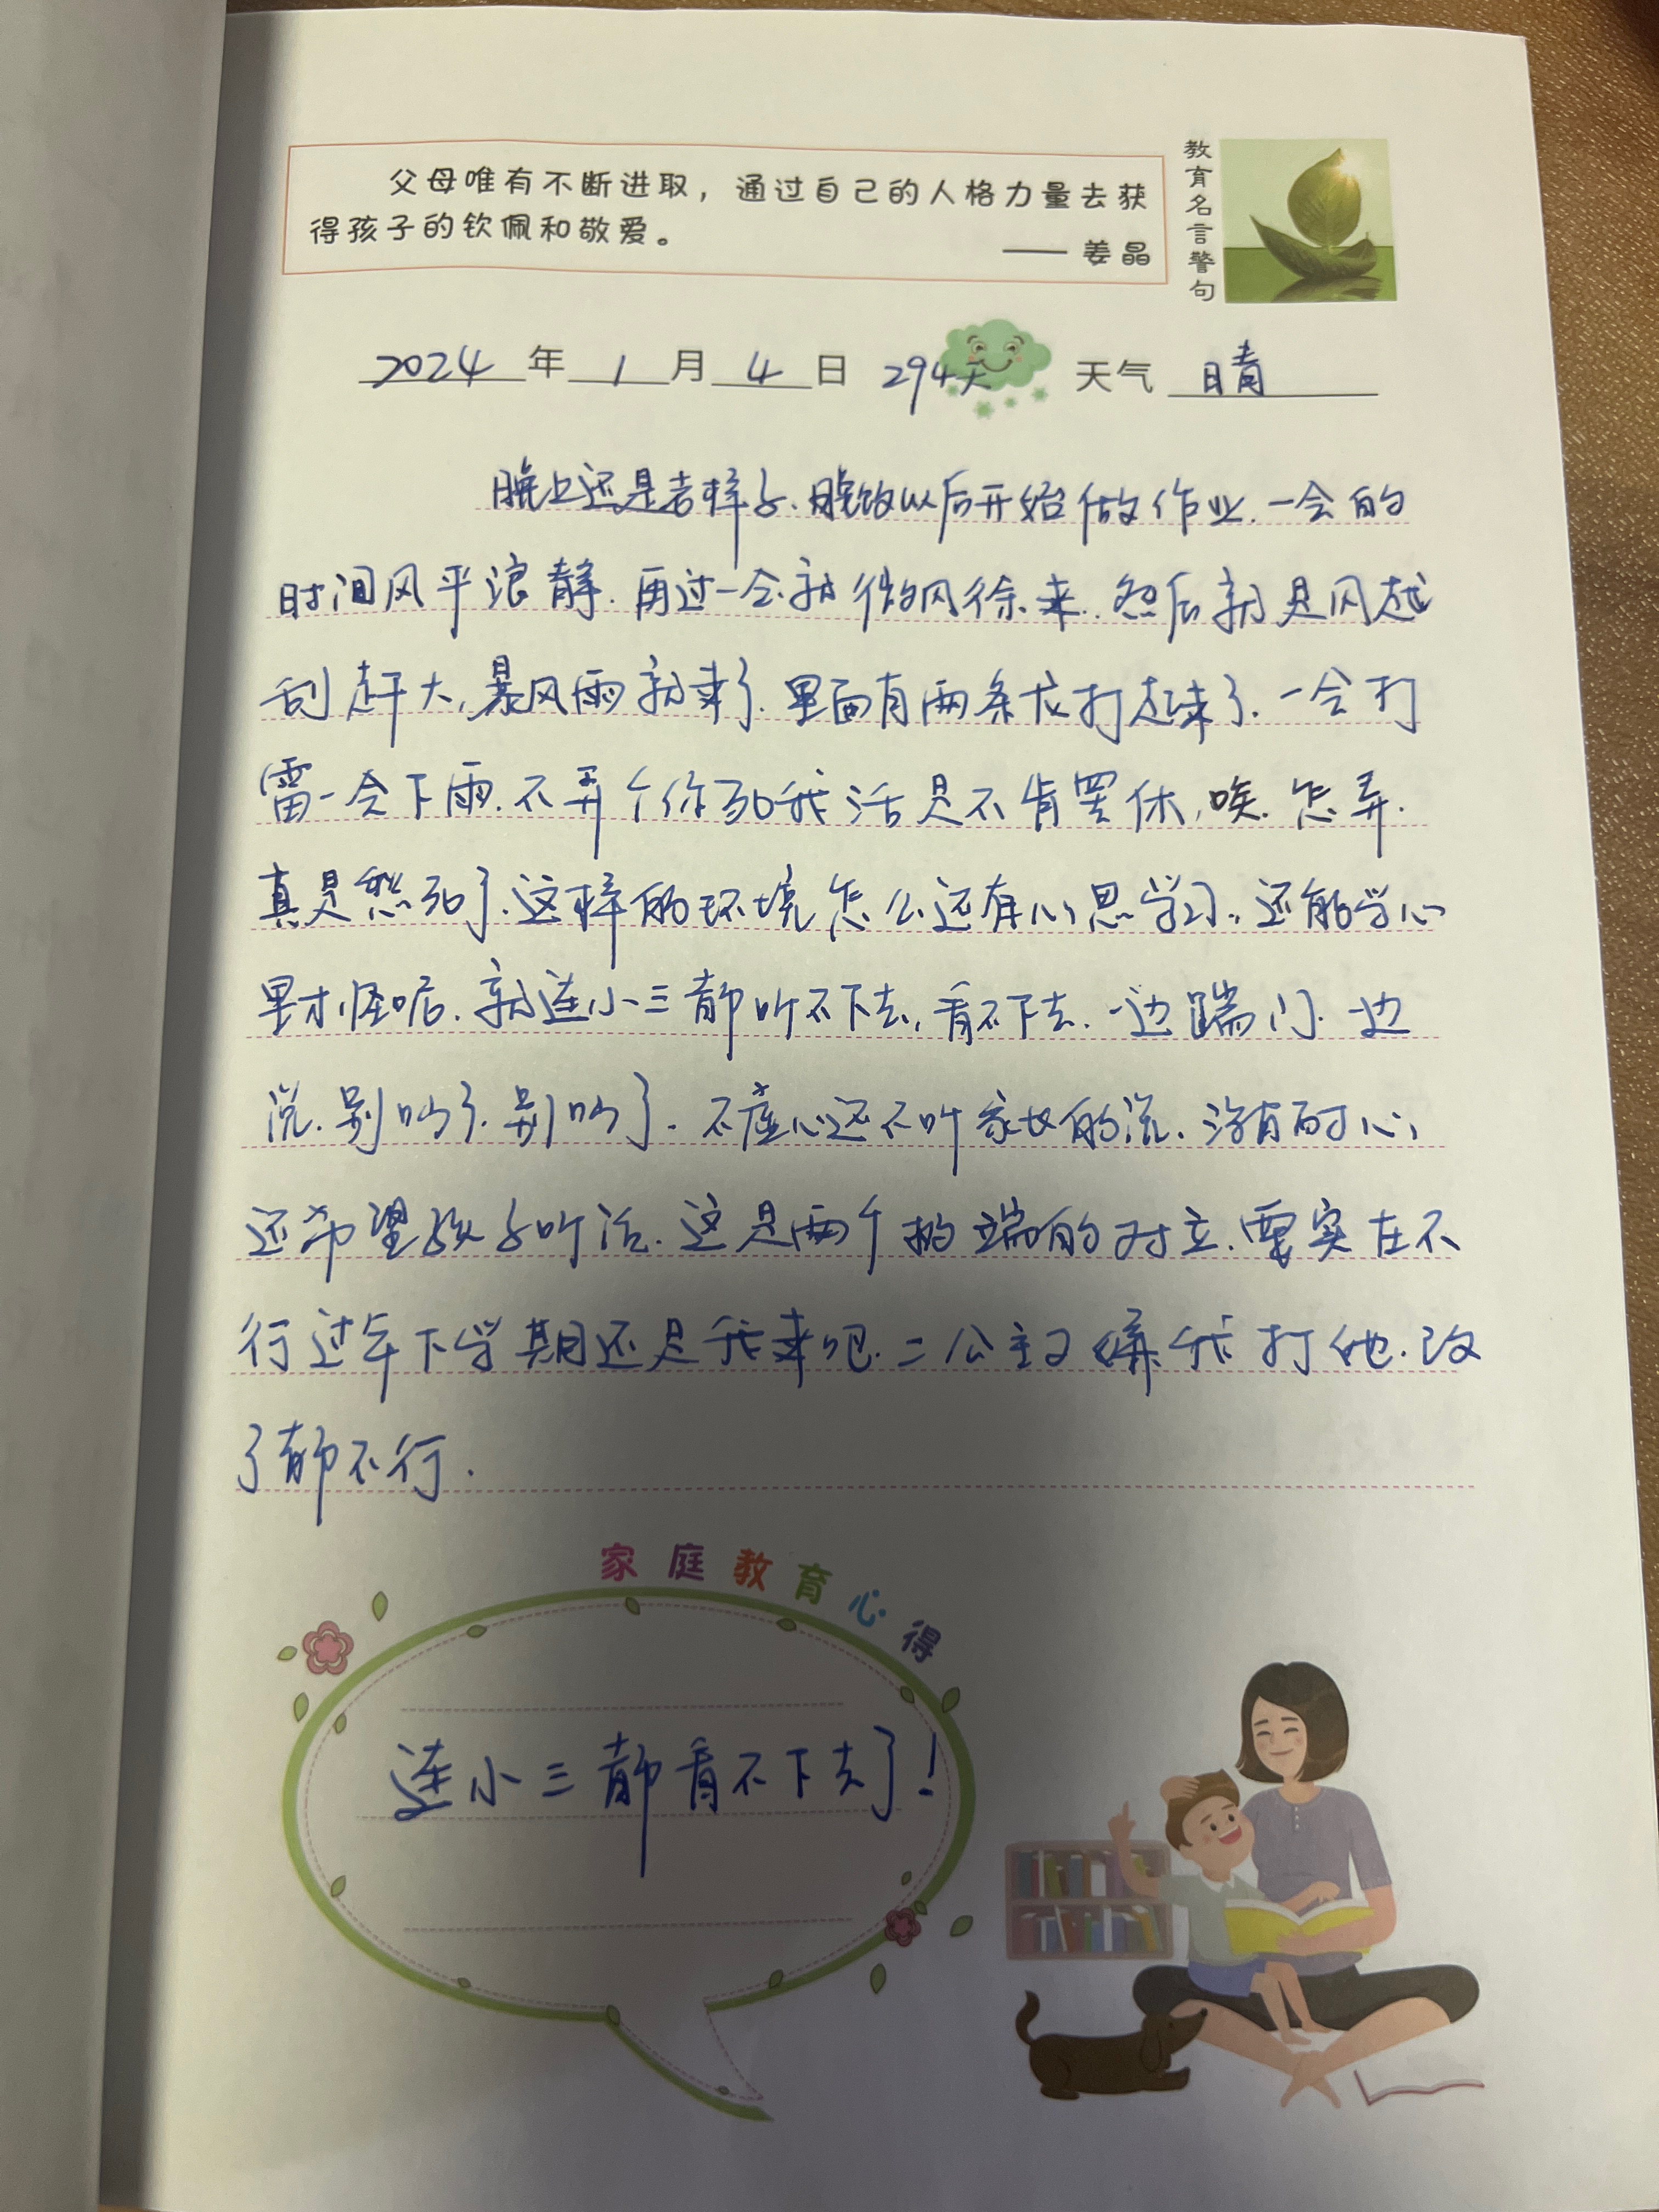 父母唯有不断进取，通过自己的人格力量去获
得孩子的钦佩和敬爱。
—— 姜晶
教育名言警句
2024年1月4日 294天 天气 晴
晚上还是老样子.晚饭以后开始做作业.一会的
时间风平浪静.再过一会就微风徐来.然后就是风越
刮越大,暴风雨就来了.里面有两条龙打起来了.一会打
雷一会下雨.不弄个你死我活是不肯罢休,唉.怎弄.
真是愁死了.这样的环境怎么还有心思学习,还能学心
里才怪呢.就连小三都听不下去,看不下去.一边踹门.一边
说.别吵了.别吵了.不虚心还不听家长的说.没有耐心,
还希望孩子听话.这是两个极端的对立.要实在不
行过年下学期还是我来吧.二公主又嫌我打他.改
了都不行.
家庭教育心得
连小三都看不下去了!